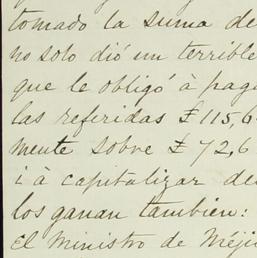 tomado la suma de
no solo dió un terrible
que le obligó à pag
las referidas £115,6
mente sobre £72,6
i à capitalizar de
los ganan tambien:
El Ministro de Méji